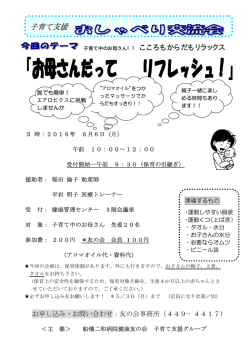 子育て支援 おしゃべり交流会
今回のテーマ 子育て中のお母さん！！ こころもからだもリラックス
「お母さんだって リフレッシュ！」
誰でも簡単！
エアロビクスに挑戦
しませんか
"アロマオイル"をつか
ったマッサージでか
らだもすっきり！！
親子一緒に楽し
める時間もあり
ます！！
日 時：２０１６年 ６月６日（月）
午前 １０：００～１２：００
受付開始―午前 ９：３０（保育の引継ぎ）
援助者： 稲田 倫子 助産師
平岩 明子 医療トレーナー
受 付： 健康管理センター ３階会議室
対 象： 子育て中のお母さん 先着２０名
参加費： ２００円 ＊友の会 会員 １００円
（アロマオイル代・資料代）
準備するもの
・運動しやすい服装
・運動くつ（上ばき）
・タオル・水分
・お子さんの水分
・必要ならオムツ
・ビニール袋
★今回の企画は、保育体制があります。外に出掛けますので、お子さんの帽子、上着、
タオルをお持ち下さい。
（保育上の安全性を確保するため、保育対象年齢を、生後４か月以上の赤ちゃんとさ
せていただいておりますので、ご了承ください。）
★保育の申し込み〆切りは ５月３０日（月）まで （定員になり次第〆切）
お申し込み・お問い合わせ：友の会事務所（４４９－４４１７）
＜主 催＞ 船橋二和病院健康友の会 子育て支援グループ